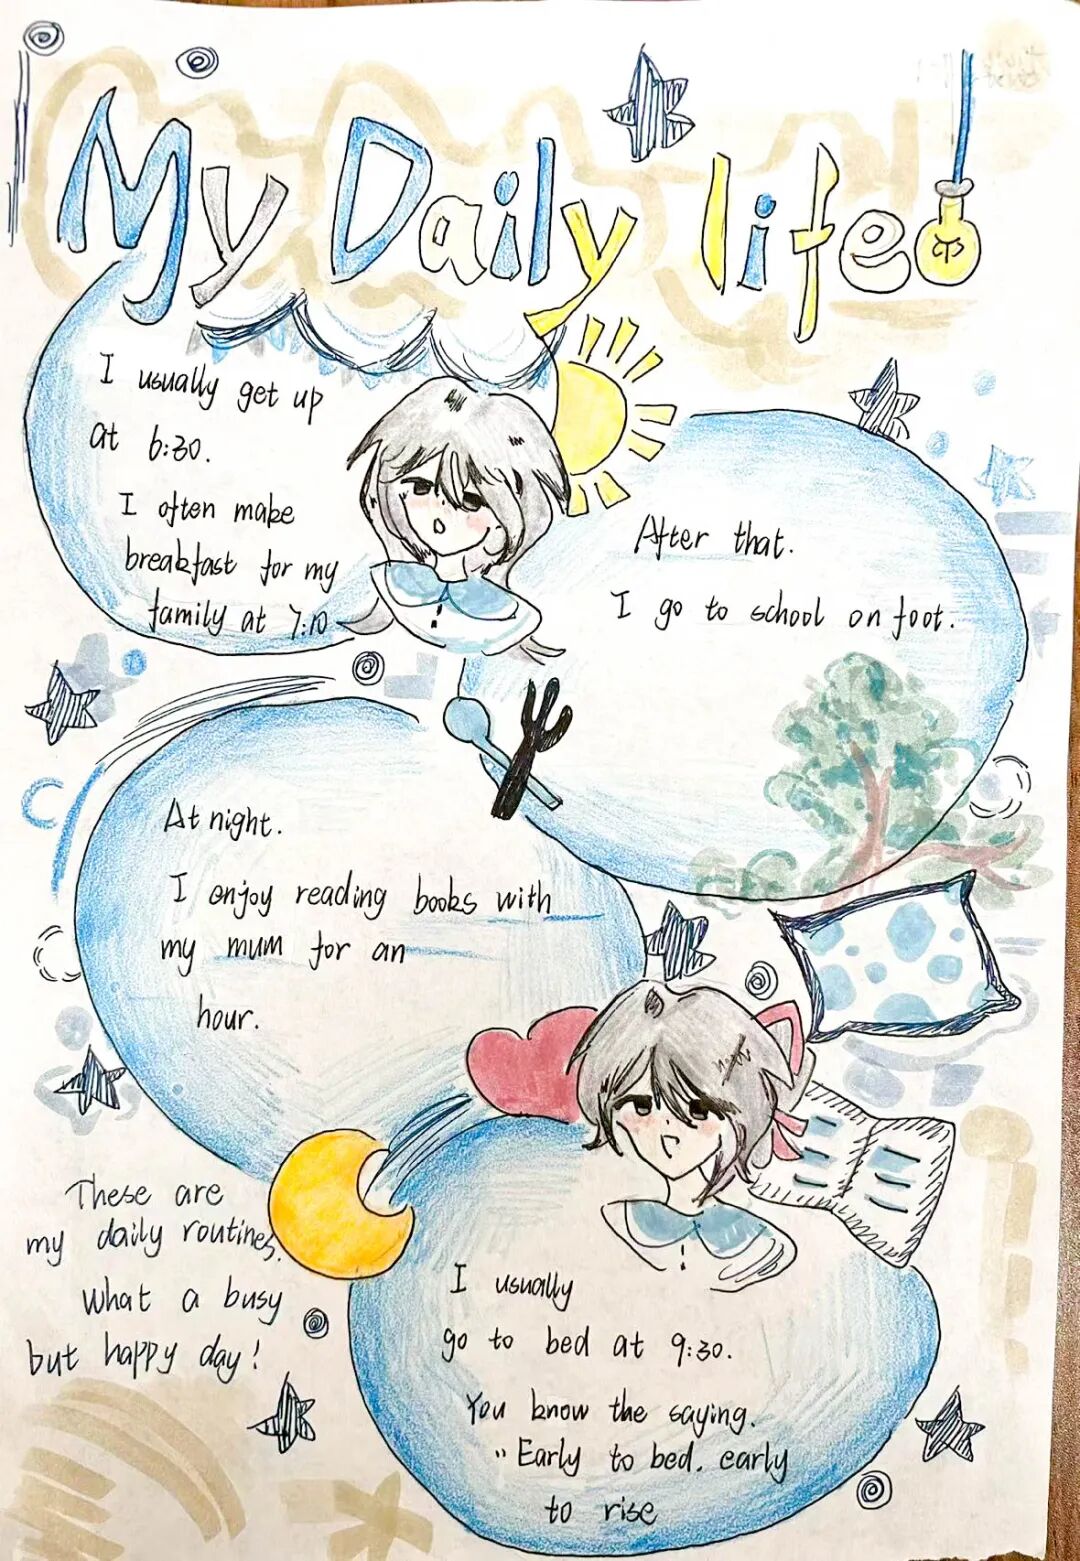 My Daily life
I usually get up
at 6:30.
I often make
breakfast for my
family at 7:10
After that.
I go to school on foot.
At night.
I enjoy reading books with
my mum for an
hour.
I usually
go to bed at 9:30.
You know the saying.
"Early to bed. early
to rise
These are
my daily routines.
What a busy
but happy day!